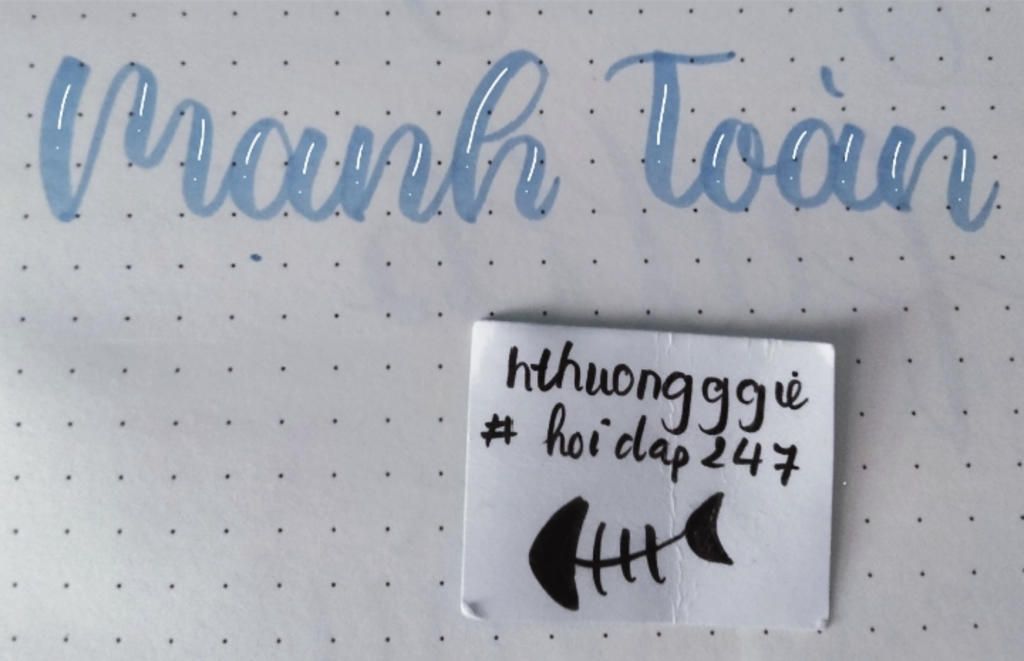 Manh Toàn
hthuongggiè
# hoidap247